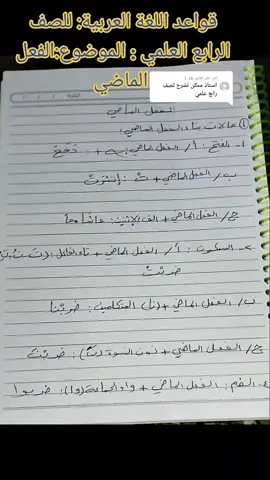 قواعد اللغة العربية: للصف
الرابع العلمي : الموضوع:الفعل
الماضي
استاذ ممكن تشرح لصف
رابع علمي
الفعل الماضي
حالات بناء الفعل الماضي:
١- الفتح: أ/ الفعل الماضي
ب/ الفعل الماضي + تْ :
ج/ الفعل الماضي + الف الاثنين:
٢- السكون: أ/ الفعل الماضي + تاء الفاعل (تَ، تِ، تُ)
ضربْتُ
ب/ الفعل الماضي + (نا) المتكلمين: ضربْنا
ج/ الفعل الماضي + نون النسوة (نَ): ضربْنَ
الضم: الفعل الماضي + واو الجماعة (وا): ضربوا